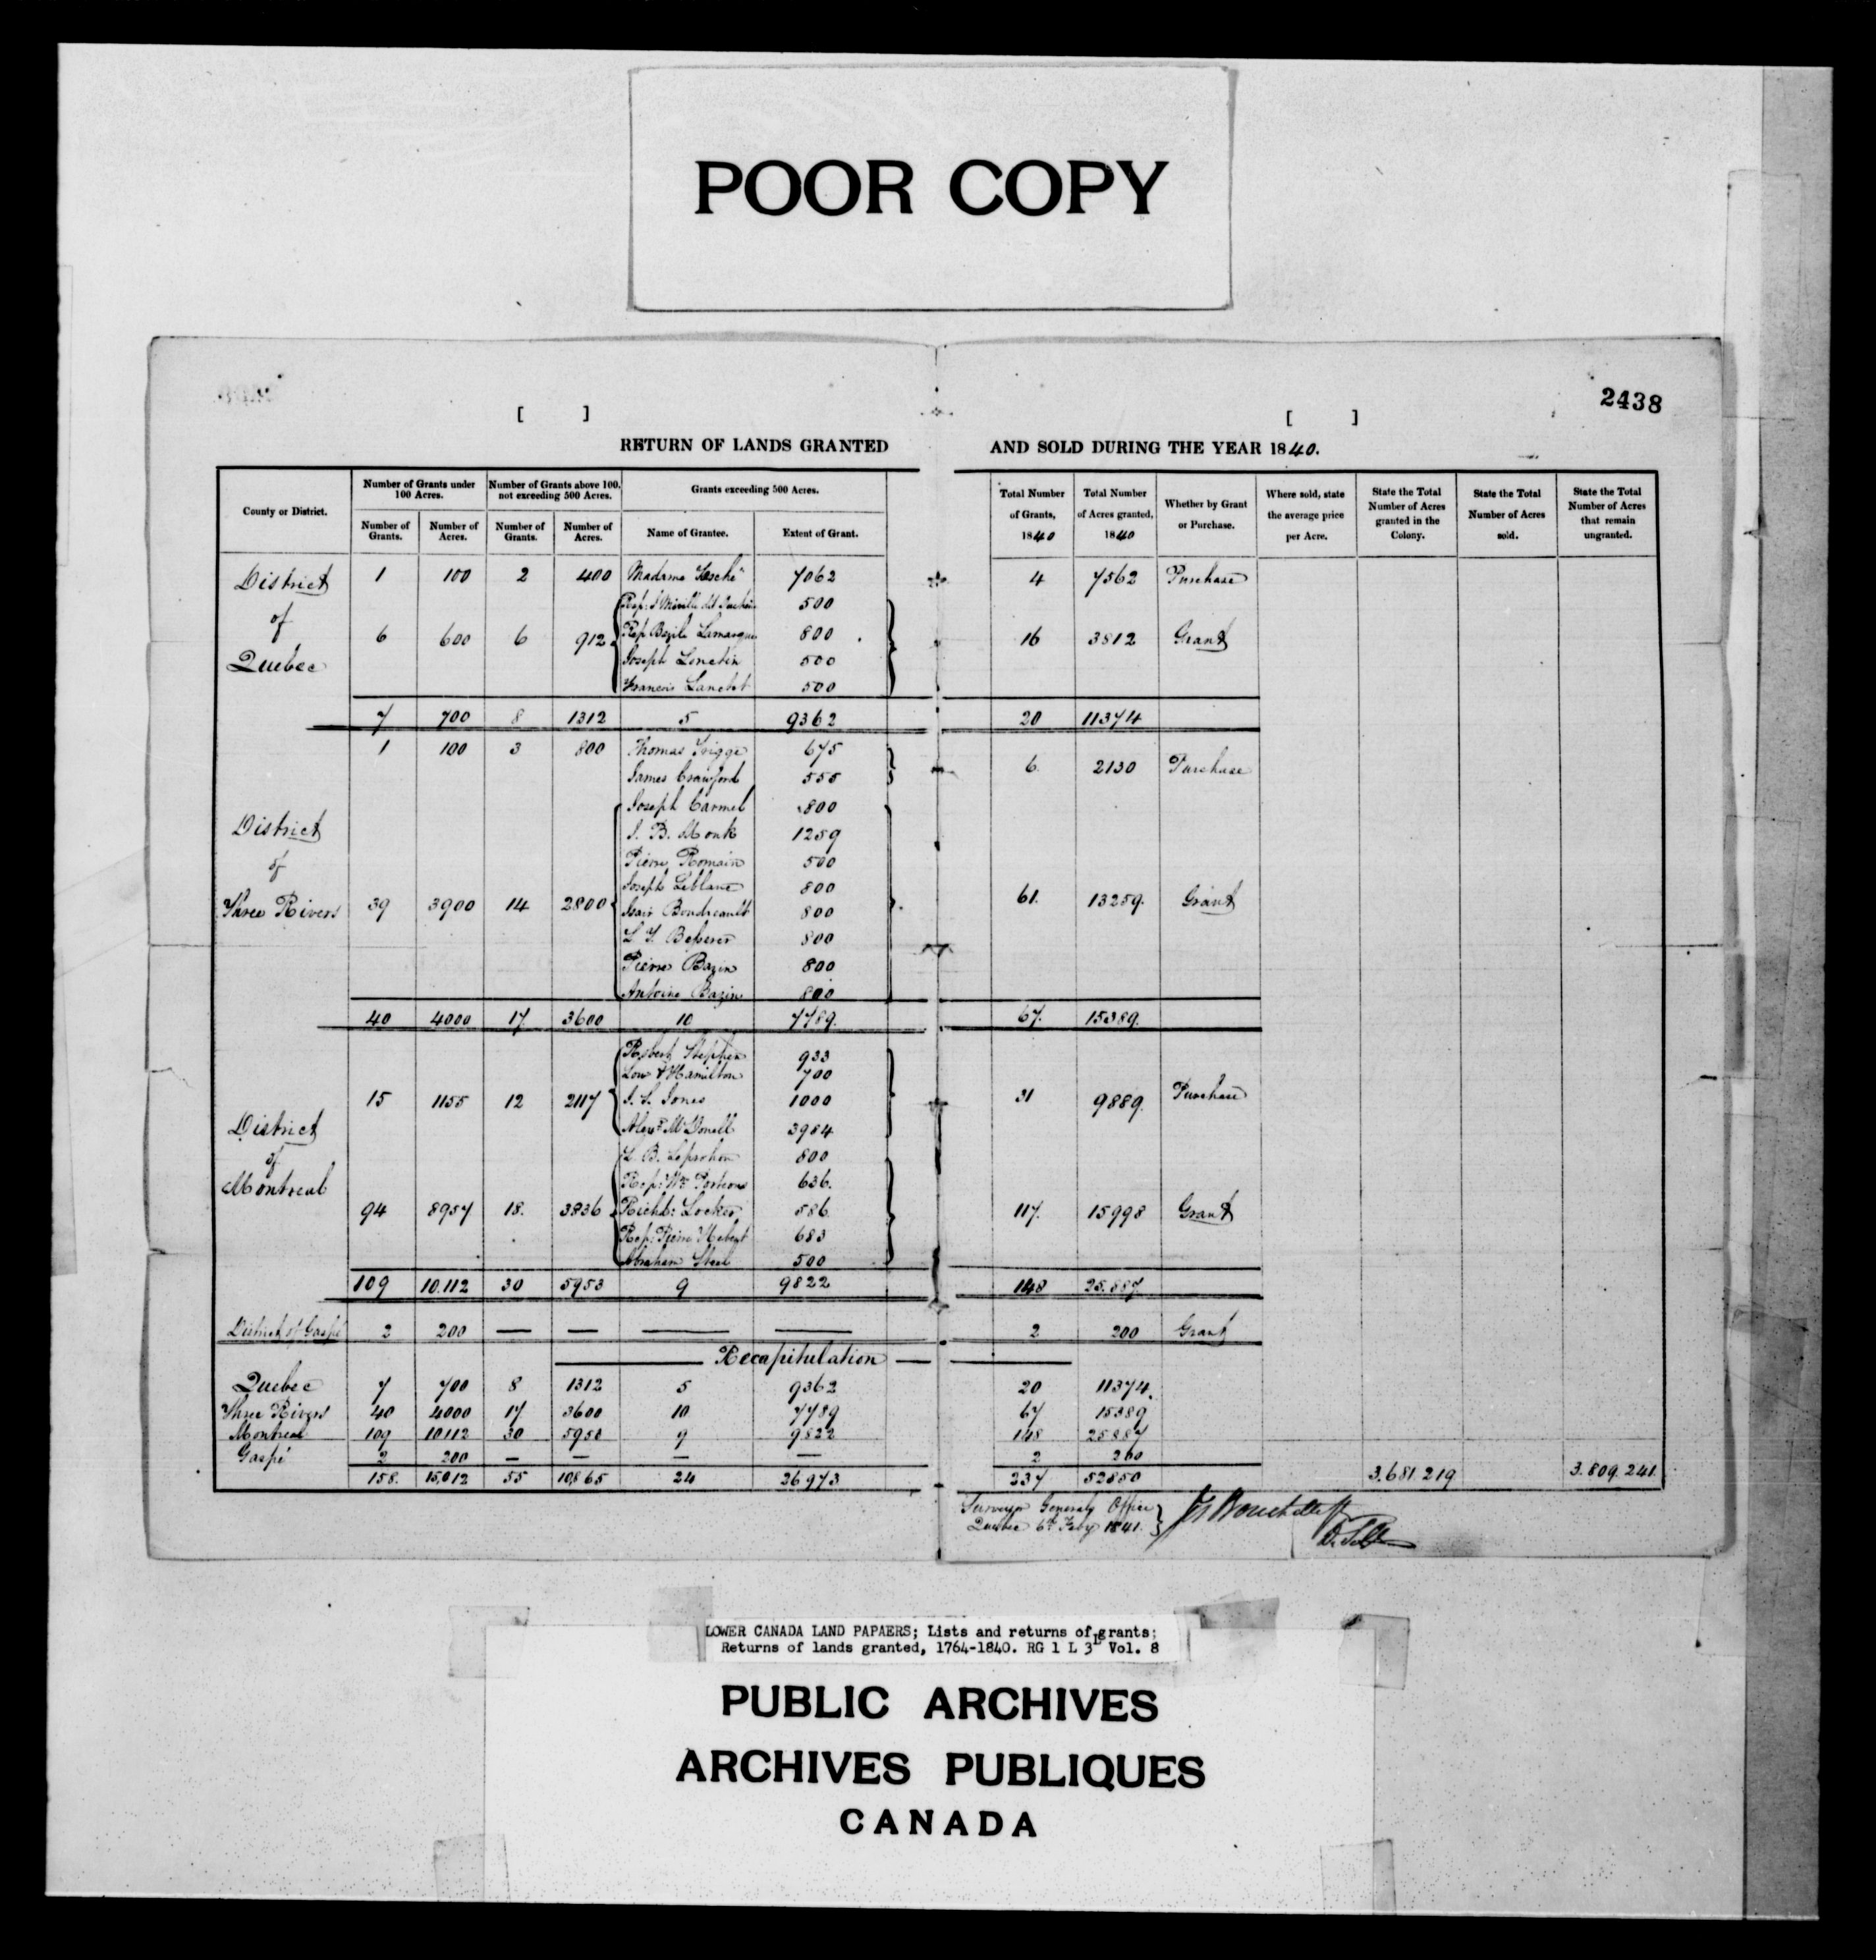 POOR COPY
2438
[ ] [ ]
RETURN OF LANDS GRANTED AND SOLD DURING THE YEAR 1840.
County or District. Number of Grants under 100 Acres. Number of Grants above 100, not exceeding 500 Acres. Grants exceeding 500 Acres. Total Number of Grants, 1840 Total Number of Acres granted, 1840 Whether by Grant or Purchase. Where sold, state the average price per Acre. State the Total Number of Acres granted in the Colony. State the Total Number of Acres sold. State the Total Number of Acres that remain ungranted.
Number of Grants. Number of Acres. Number of Grants. Number of Acres. Name of Grantee. Extent of Grant.
District of Quebec
1 100 2 400 Madame 7062 4 7562 Purchase
500
6 600 6 912 Rep Bazile 800 16 3812 Grant
Joseph 500
Francois Lanctot 500
7 700 8 1312 5 9362 20 11374
District of Three Rivers
1 100 3 800 Thomas 675 6. 2130 Purchase
James Crawford 555
Joseph Carmel 800
J. B. Monk 1259
Pierre Romain 500
Joseph Leblanc 800
39 3900 14 2800 Boudreault 800 61. 13259. Grant
800
Pierre Bazin 800
Antoine Bazin 800
40 4000 17 3600 10 7789. 67. 15389.
District of Montreal
Robert Stephen 933
Low & Hamilton 700
15 1155 12 2117 Jones 1000 31 9889. Purchase
Alexr. McDonell 3984
L. B. Leprohon 800
Rep: Wm Porteous 636.
94 8957 18. 3836 Richd: 586 117. 15998 Grant
Rep: Pierre Hebert 683
Abraham 500
109 10.112 30 5953 9 9822 148 25.887
District of Gaspé 2 200 — — — — 2 200 Grant
Recapitulation
Quebec 7 700 8 1312 5 9362 20 11374.
Three Rivers 40 4000 17 3600 10 7789 67 15389
Montreal 109 10112 30 5953 9 9822 148 25887
Gaspé 2 200 — — — — 2 200
158. 15,012 55 10,865 24 26973 237 52850 3.681.219 3.809.241.
Surveyor Generals Office
Quebec 6th Feby 1841.
LOWER CANADA LAND PAPAERS; Lists and returns of grants:
Returns of lands granted, 1764-1840. RG 1 L 3L Vol. 8
PUBLIC ARCHIVES
ARCHIVES PUBLIQUES
CANADA